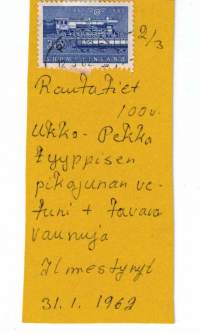 2/3
SUOMI-FINLAND
Rautatiet
100v.
Ukko-Pekka
tyyppisen
pikajunan ve-
turi + tavara
vaunuja
Ilmestynyt
31.1.1962